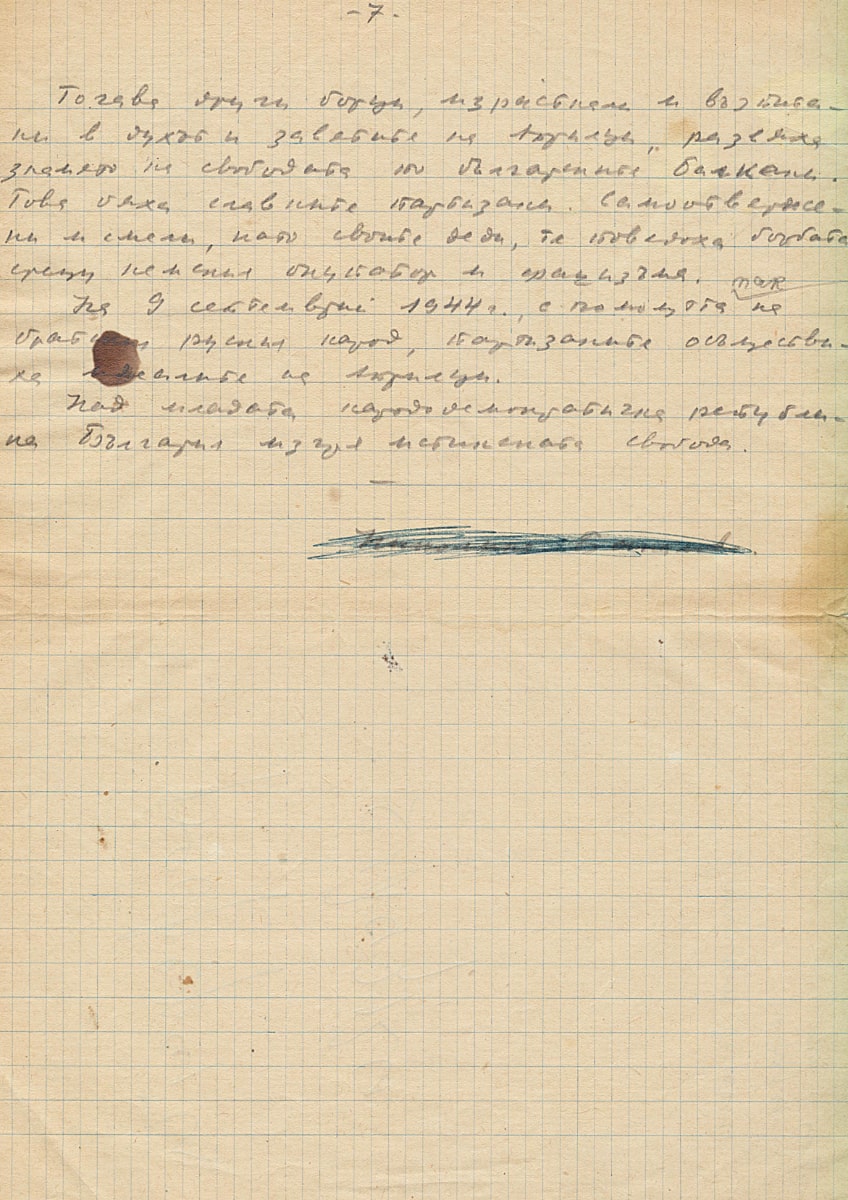 -7.
Тогава други борци, израстнали и възпита-
ни в духът и заветите на Априлци, развяха
знамето на свободата по българските балкани.
Това бяха славните партизани. Самоотверже-
ни и смели, като своите деди, те поведоха борбата
срещу немския окупатор и фашизъма.
пак
На 9 септемврий 1944 г., с помощта на
руския народ, партизаните осъществи-
ха идеалите на Априлци.
Над младата народодемократична републи-
ка България изгря истинската свобода.
—